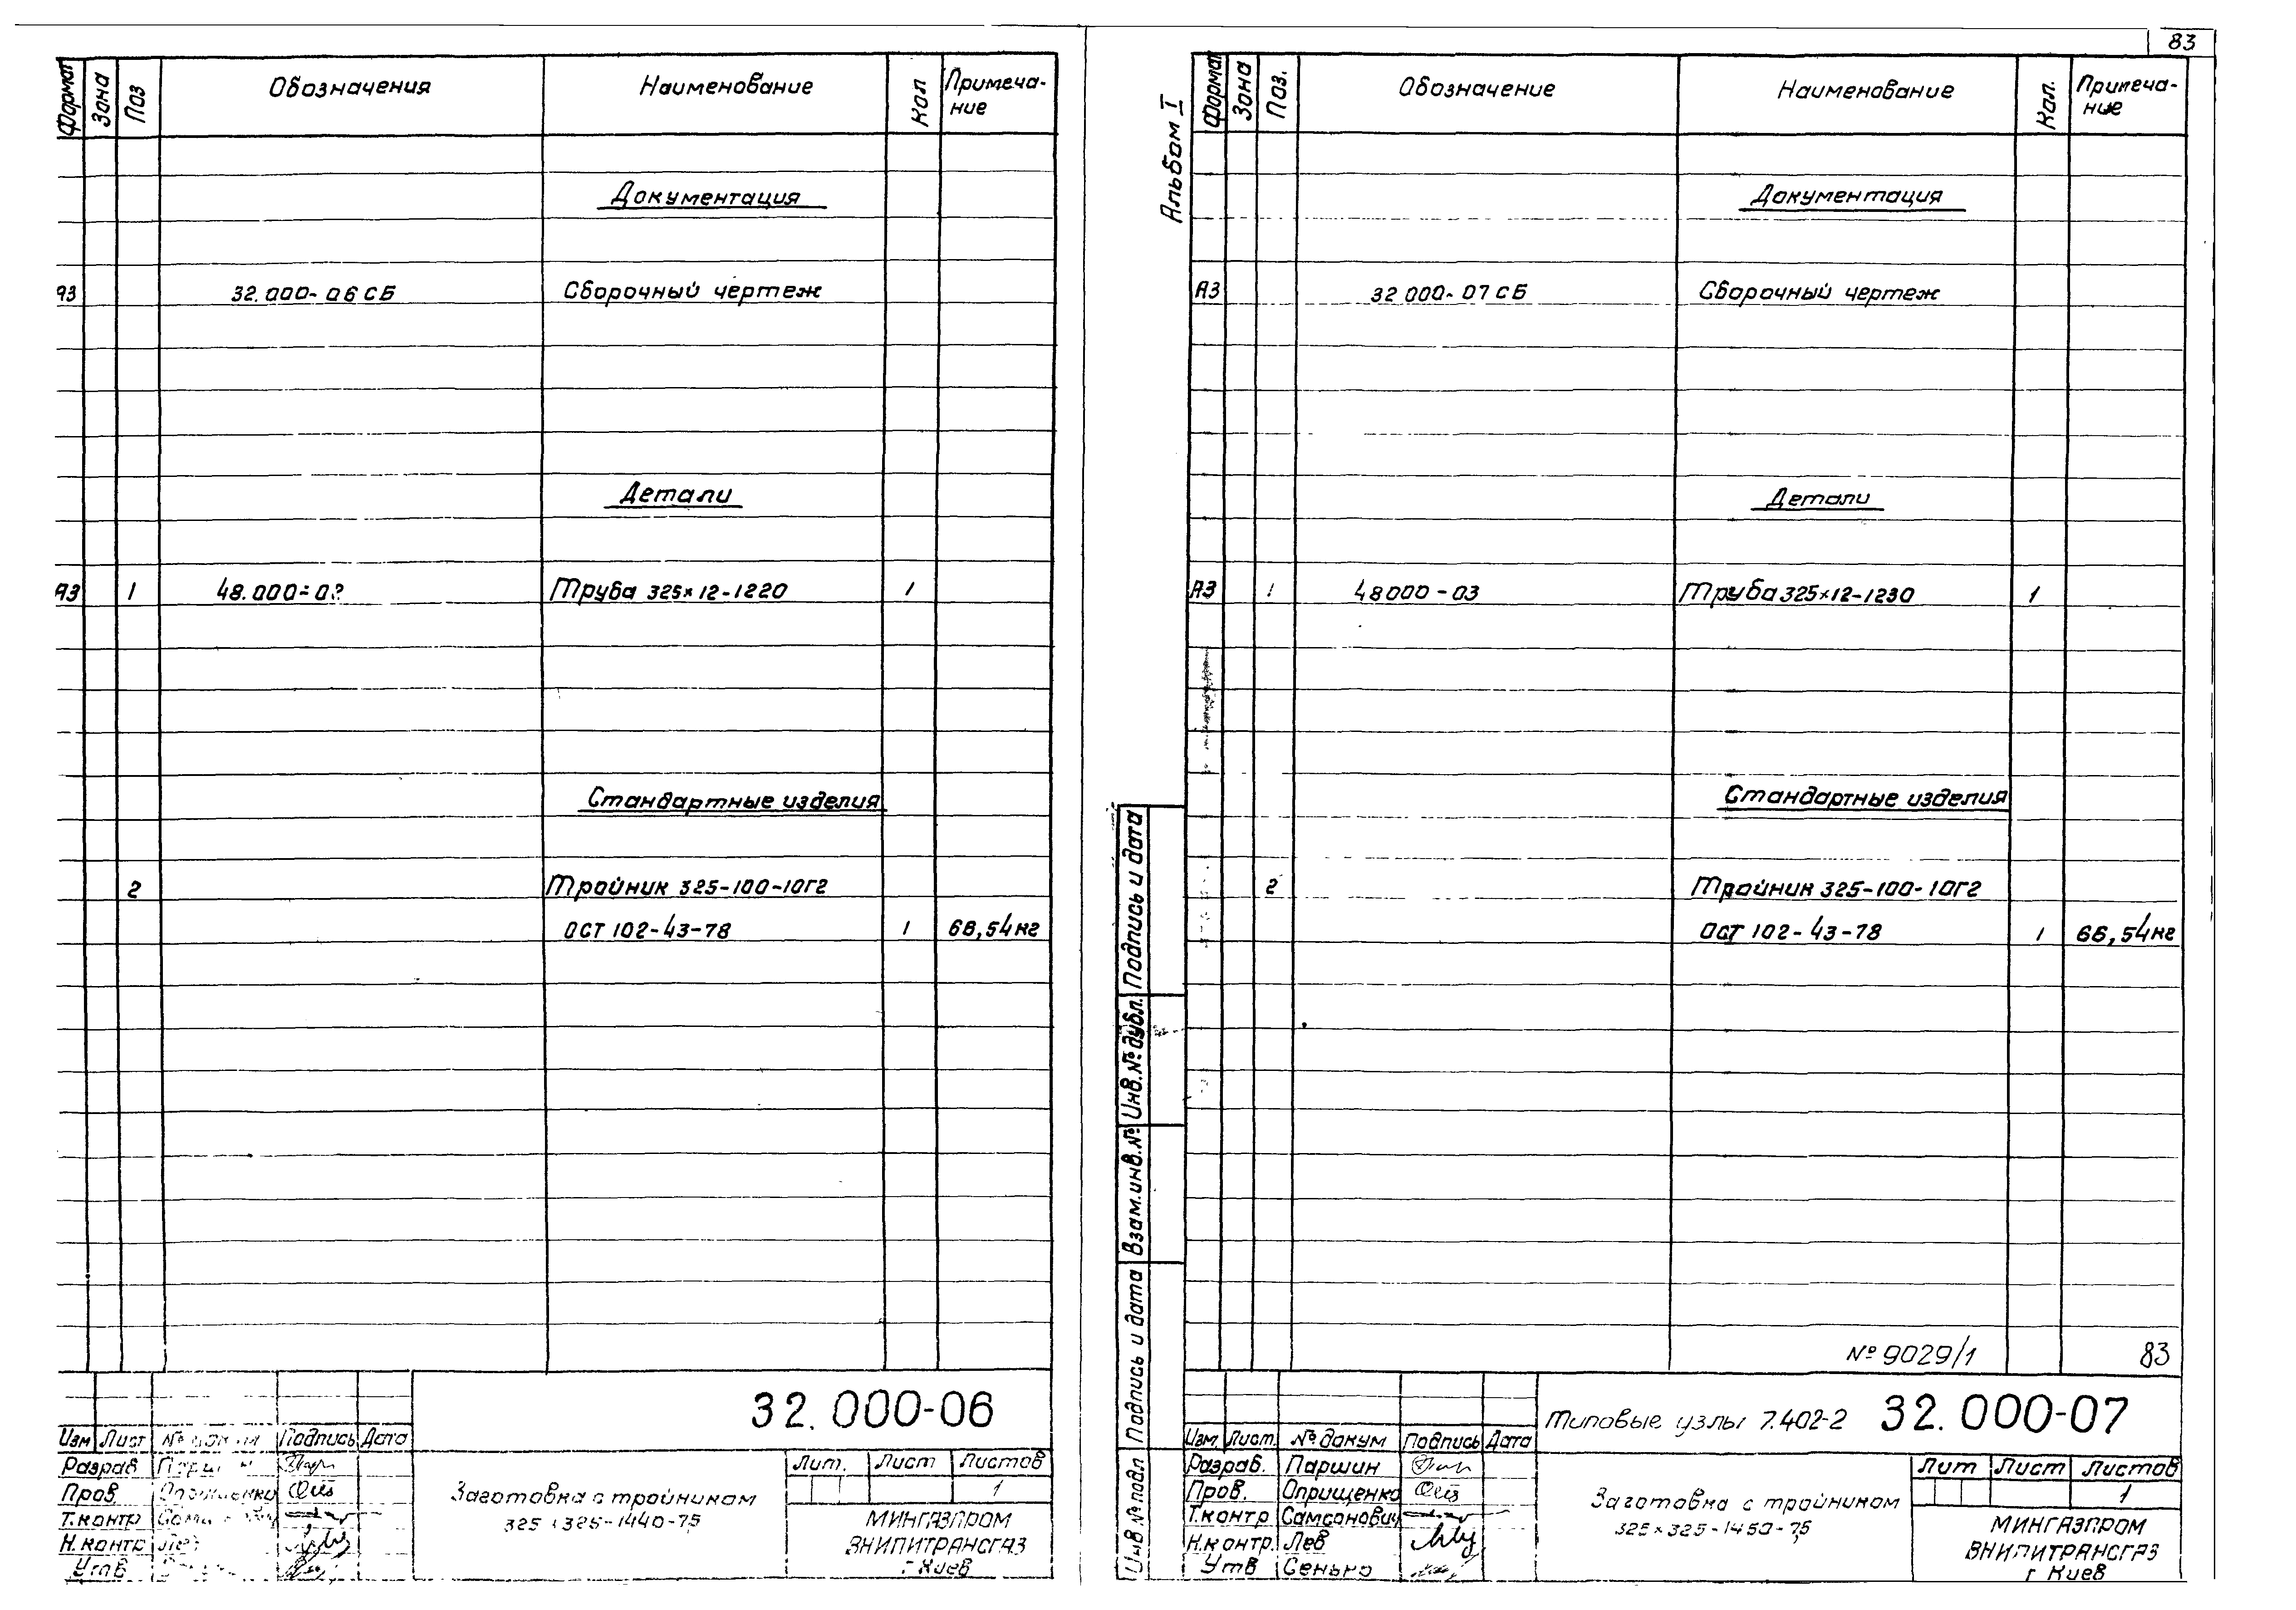 Формат Зона Поз Обозначения Наименование Кол Примеча-
ние
Документация
А3 32.000-06 СБ Сборочный чертеж
Детали
А3 1 Труба 325×12-1220 1
Стандартные изделия
2 Тройник 325-100-10Г2
ОСТ 102-43-78 1 66,54кг
32.000-06
Изм Лист Подпись Дата
Разраб
Пров.
Т.контр
Н.контр
Утв
Заготовка с тройником
325×325-1440-75
Лит. Лист Листов
1
МИНГАЗПРОМ
ВНИПИТРАНСГАЗ
г Киев
83
Альбом I
Формат Зона Поз. Обозначение Наименование Кол. Примеча-
ние
Документация
А3 32 000-07 СБ Сборочный чертеж
Детали
А3 1 48000-03 Труба 325×12-1230 1
Стандартные изделия
2 Тройник 325-100-10Г2
ОСТ 102-43-78 1 66,54кг
№ 9029/1 83
Типовые узлы 7.402-2 32.000-07
Изм. Лист. № докум Подпись Дата
Разраб. Паршин
Пров. Оприщенко
Т.контр Самсонович
Н.контр. Лев
Утв Сенько
Заготовка с тройником
325×325-1450-75
Лит Лист Листов
1
МИНГАЗПРОМ
ВНИПИТРАНСГАЗ
г Киев
Инв № подл Подпись и дата Взам.инв.№ Инв.№ дубл. Подпись и дата